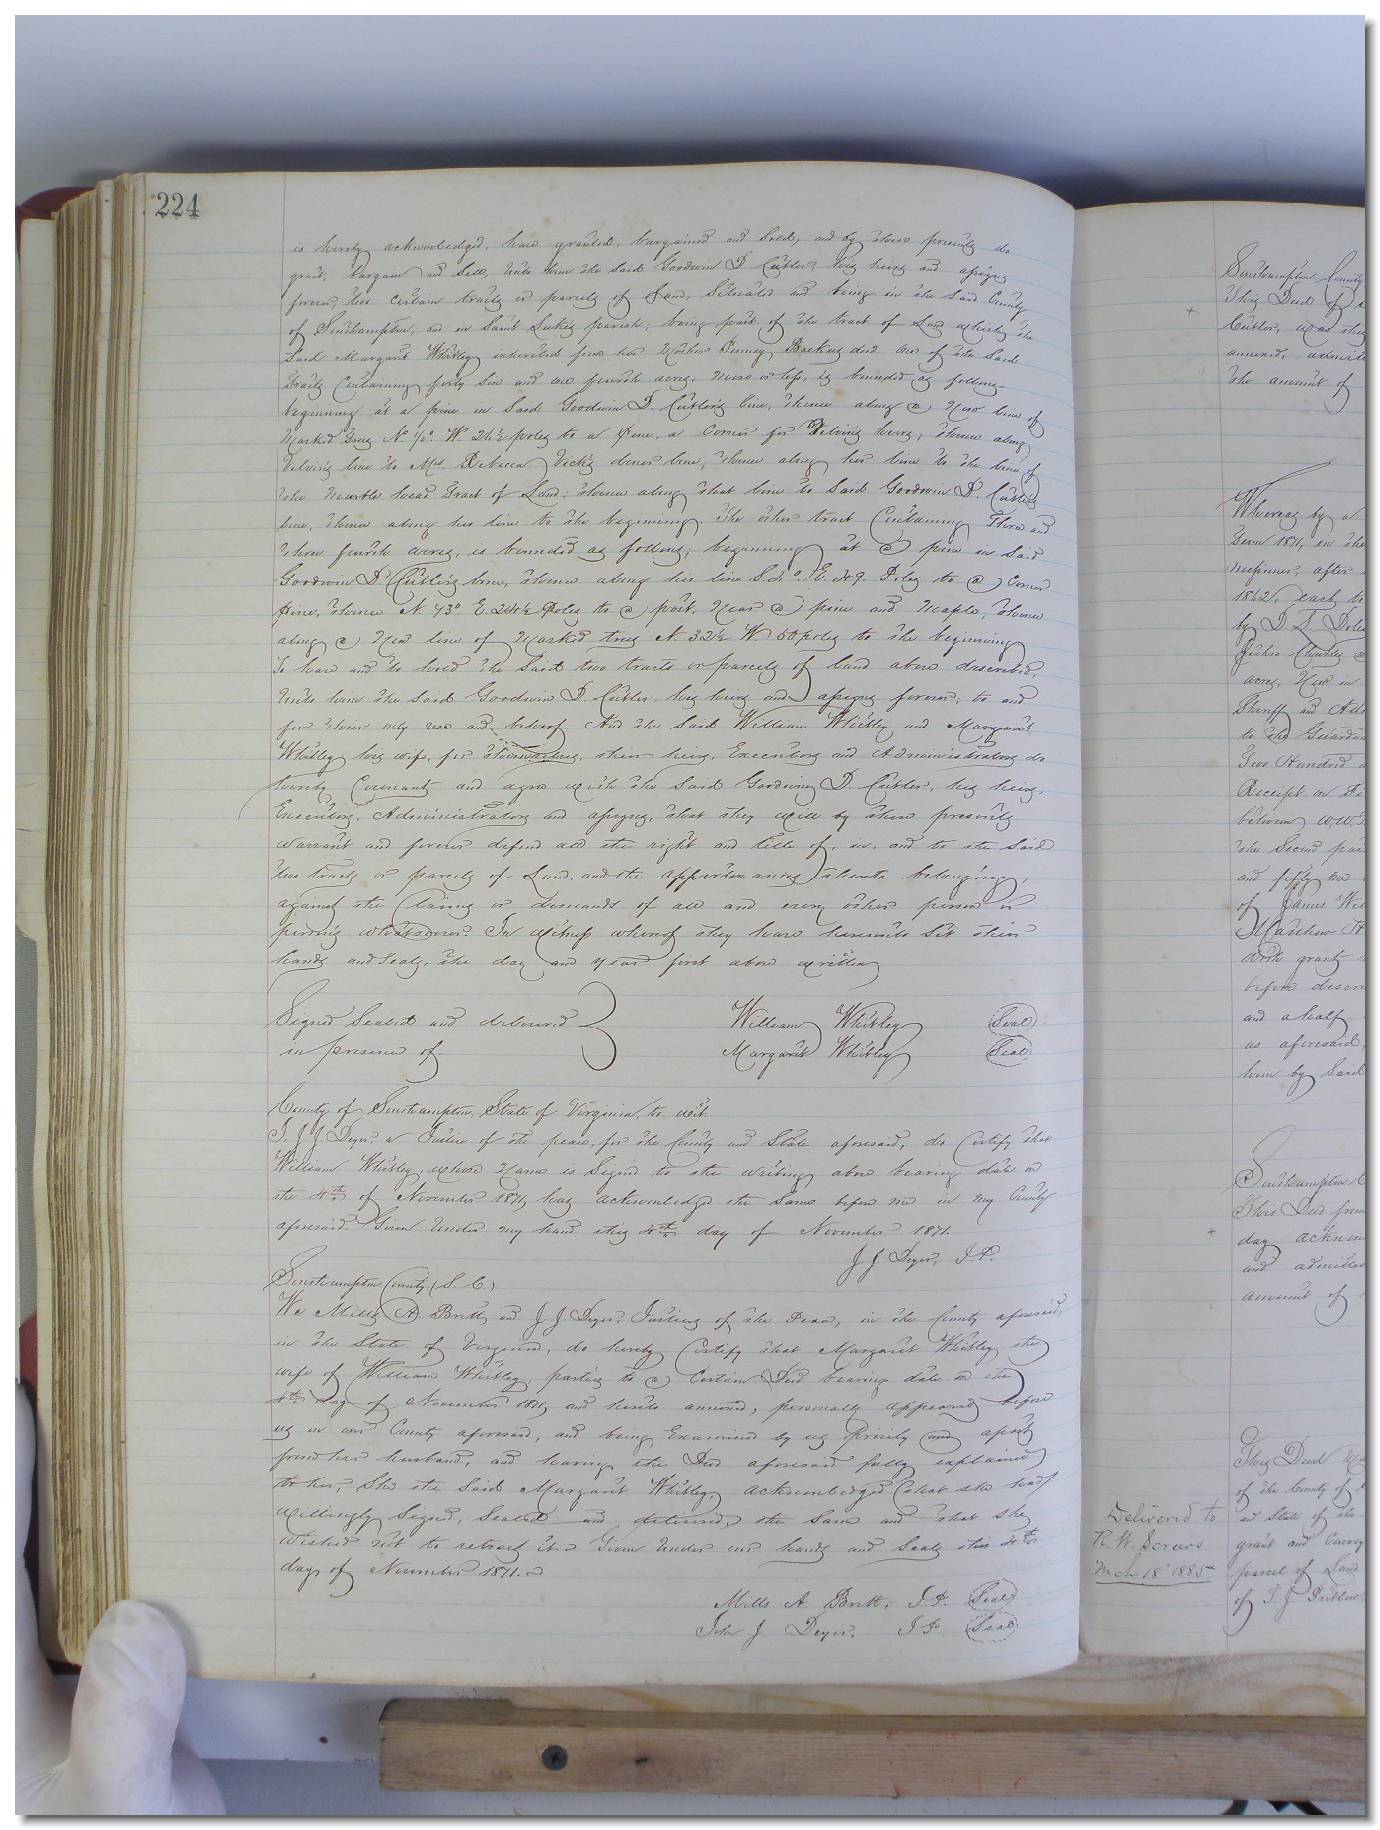 224
is hereby acknowledged, have granted, bargained and sold, and by these presents do
grant, bargain and sell, unto him the said Goodwin D. Cutler, his heirs and assigns
forever, two certain tracts or parcels of Land, Situated and being in the Said County
of Southampton, and in Saint Lukes parish, being part of the tract of Land which the
Said Margaret Whitley inherited from her Mother decd. One of the Said
Tracts Containing forty and one fourth acres, more or less, is bounded as follows—
beginning at a pine in Said Goodwin D. Cutler's line, thence along a New line of
Marked Trees N. W. poles to a Pine, a Corner for heirs, thence along
line to Mrs Rebecca dower line, thence along her line to the line of
the Marble head Tract of Land; thence along that line to Said Goodwin D. Cutler's
line, thence along his line to the beginning. The other tract Containing Three and
three fourth acres, is bounded as follows, beginning at a pine in Said
Goodwin D. Cutler's line, thence along his line Poles to a Corner
Pine, thence N. 73° E. Poles to a post, Near a pine and Maple, thence
along a New line of Marked trees N. 32½ W. 50 poles to the beginning
To have and to hold the Said two tracts or parcels of land above described,
Unto him the Said Goodwin D. Cutler, his heirs and assigns forever; to and
for their only use and behoof. And the Said William Whitley and Margaret
Whitley his wife, for themselves, their heirs, Executors and Administrators do
hereby Covenant and agree with the Said Goodwin D. Cutler, his heirs,
Executors, Administrators and assigns, that they will by these presents
warrant and forever defend all the right and title of, in, and to the Said
two tracts or parcels of Land, and the appurtenances thereto belonging,
against the Claims or demands of all and every other person or
persons whatsoever. In Witness whereof they have hereunto Set their
hands and Seals, the day and year first above written
Signed Sealed and delivered William Whitley (Seal)
in presence of Margaret Whitley (Seal)
County of Southampton, State of Virginia, to wit.
I, J. J. Deyer, a Justice of the peace, for the County and State aforesaid, do Certify that
William Whitley, whose Name is Signed to the writing above bearing date on
the 4th of November 1871, has acknowledged the Same before me in my County
aforesaid. Given Under my hand this 4th day of November 1871.
J. J. Deyer, J.P.
Southampton County (S. C.)
We Mills A. Britt, and J. J. Deyer, Justices of the Peace, in the County aforesaid,
in the State of Virginia, do hereby Certify that Margaret Whitley the
wife of William Whitley, parties to a Certain Deed bearing date on the
4th day of November 1871, and hereto annexed, personally appeared before
us in our County aforesaid, and being Examined by us Privily and apart
from her husband, and having the Deed aforesaid fully explained
to her, She the Said Margaret Whitley, acknowledged that she had
willingly Signed, Sealed and delivered, the Same and that She
wished not to retract it. Given Under our hands and Seals this 4th
day of November 1871.
Mills A. Britt, J.P. (Seal)
John J. Deyer, J.P. (Seal)
Southampton County
This Deed of
Cutler, was this
annexed, admitted
the amount of
Whereas by a
Term 1871, in the
after
1862, each to
by D. T.
acres, New in
Sheriff and
to the Guardian
Two Hundred
Receipt on
between W. W.
the Second part
and fifty two
of James
Mathew
doth grant
before
and a half
as aforesaid,
him by Said
Southampton
This Deed from
day
and admitted
amount of
This Deed
of the County of
and State of the
grant and Convey
parcel of Land
of T. J.
Delivered to
R. W. Screws
Mch 18 1885